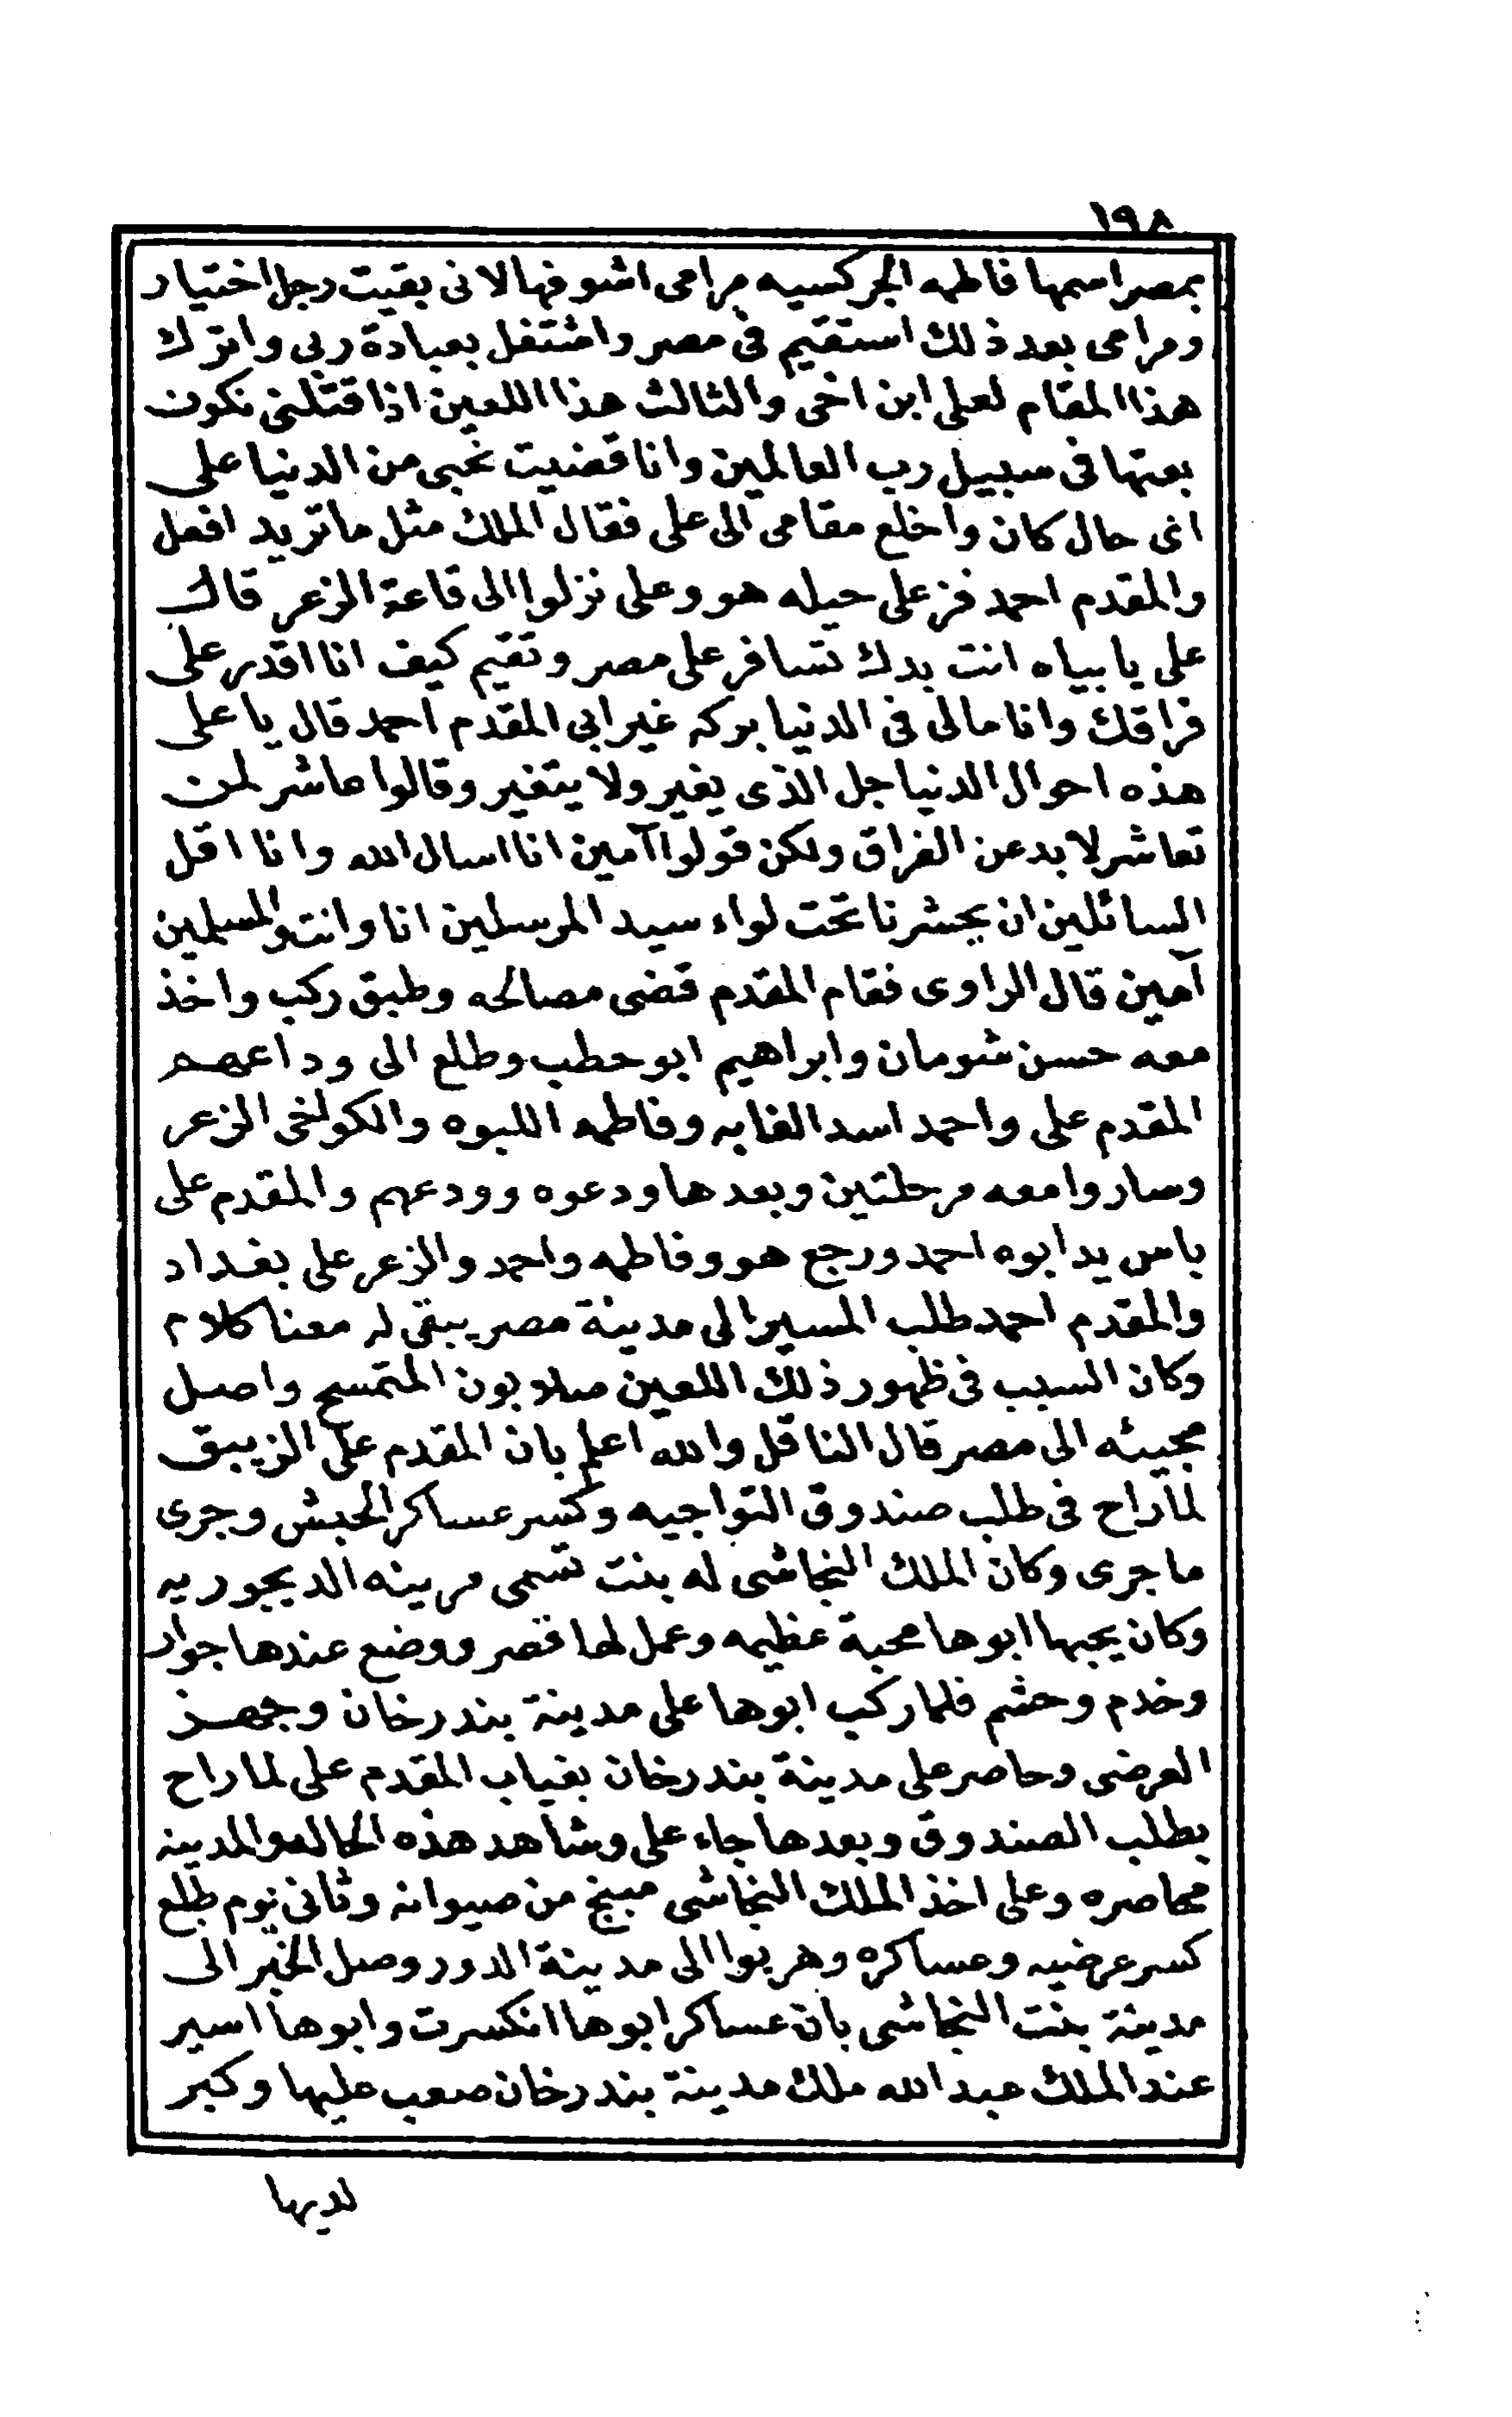 ١٩٨
بمصر اسمها فاطمه الجركسيه مرامى اشوفها لانى بقيت رجل اختيار
ومرامى بعد ذلك استقيم فى مصر واشتغل بعبادة ربى واترك
هذا المقام لعلى ابن اخى والثالث هذا اللعين اذا قتلنى نكون
بعتها فى سبيل رب العالمين وانا قضيت نحبى من الدنيا على
اى حال كان واخلع مقامى الى على فقال الملك مثل ما تريد افعل
والمقدم احمد فز على حيله هو وعلى نزلوا الى قاعة الزعر قال
على يا بياه انت بدك تسافر على مصر وتقيم كيف انا اقدر على
فراقك وانا مالى فى الدنيا بركه غير ابى المقدم احمد قال يا على
هذه احوال الدنيا جل الذى يغير ولا يتغير وقالوا عاشر لمن
تعاشر لا بد عن الفراق ولكن قولوا آمين انا اسال الله وانا اقل
السائلين ان يحشرنا تحت لواء سيد المرسلين انا وانت والمسلمين
آمين قال الراوى فقام المقدم قضى مصالحه وطبق ركب واخذ
معه حسن شومان وابراهيم ابو حطب وطلع الى وداعهم
المقدم على واحمد اسد الغابه وفاطمه اللبوه والكولخى الزعر
وساروا معه مرحلتين وبعدها ودعوه وودعهم والمقدم على
باس يد ابوه احمد ورجع هو وفاطمه واحمد والزعر على بغداد
والمقدم احمد طلب المسير الى مدينة مصر يبقى له معنا كلام
وكان السبب فى ظهور ذلك اللعين صلابون المتمسح واصل
مجيئه الى مصر قال الناقل والله اعلم بان المقدم على الزيبق
لما راح فى طلب صندوق التواجيه وكسر عساكر الحبش وجرى
ما جرى وكان الملك النجاشى له بنت تسمى مرينه الديجوريه
وكان يحبها ابوها محبة عظيمه وعمل لها قصر ووضع عندها جوار
وخدم وحشم فلما ركب ابوها على مدينة بندرخان وجهز
العرضى وحاصر على مدينة بندرخان بغياب المقدم على لما راح
بطلب الصندوق وبعدها جاء على وشاهد هذه الحاله والمدينه
محاصره وعلى اخذ الملك النجاشى مبنج من صيوانه وثانى يوم طلع
كسر عرضيه وعساكره وهربوا الى مدينة الدور وصل الخبر الى
مدينة بنت النجاشى بان عساكر ابوها انكسرت وابوها اسير
عند الملك عبد الله ملك مدينة بندرخان صعب عليها وكبر
لديها